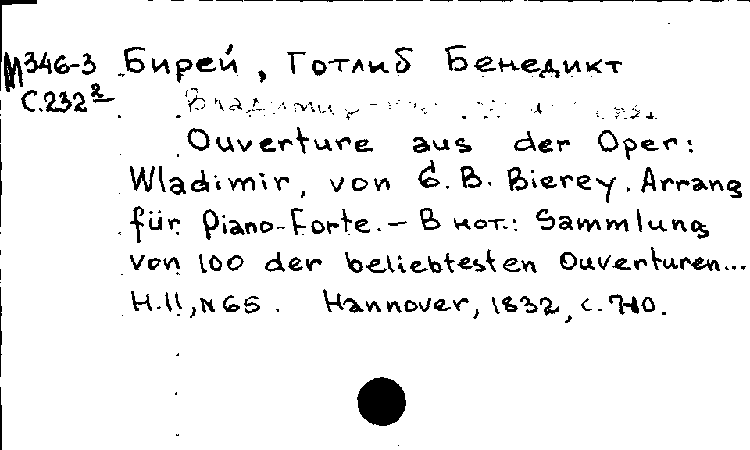 М346-3 Бирей, Готлиб Бенедикт
С.232²
Владимир
Ouverture aus der Oper:
Wladimir, von G. B. Bierey. Arrang
für Piano-Forte. – В кот.: Sammlung
von 100 der beliebtesten Ouverturen...
H.11, N65. Hannover, 1832, с. 7-10.